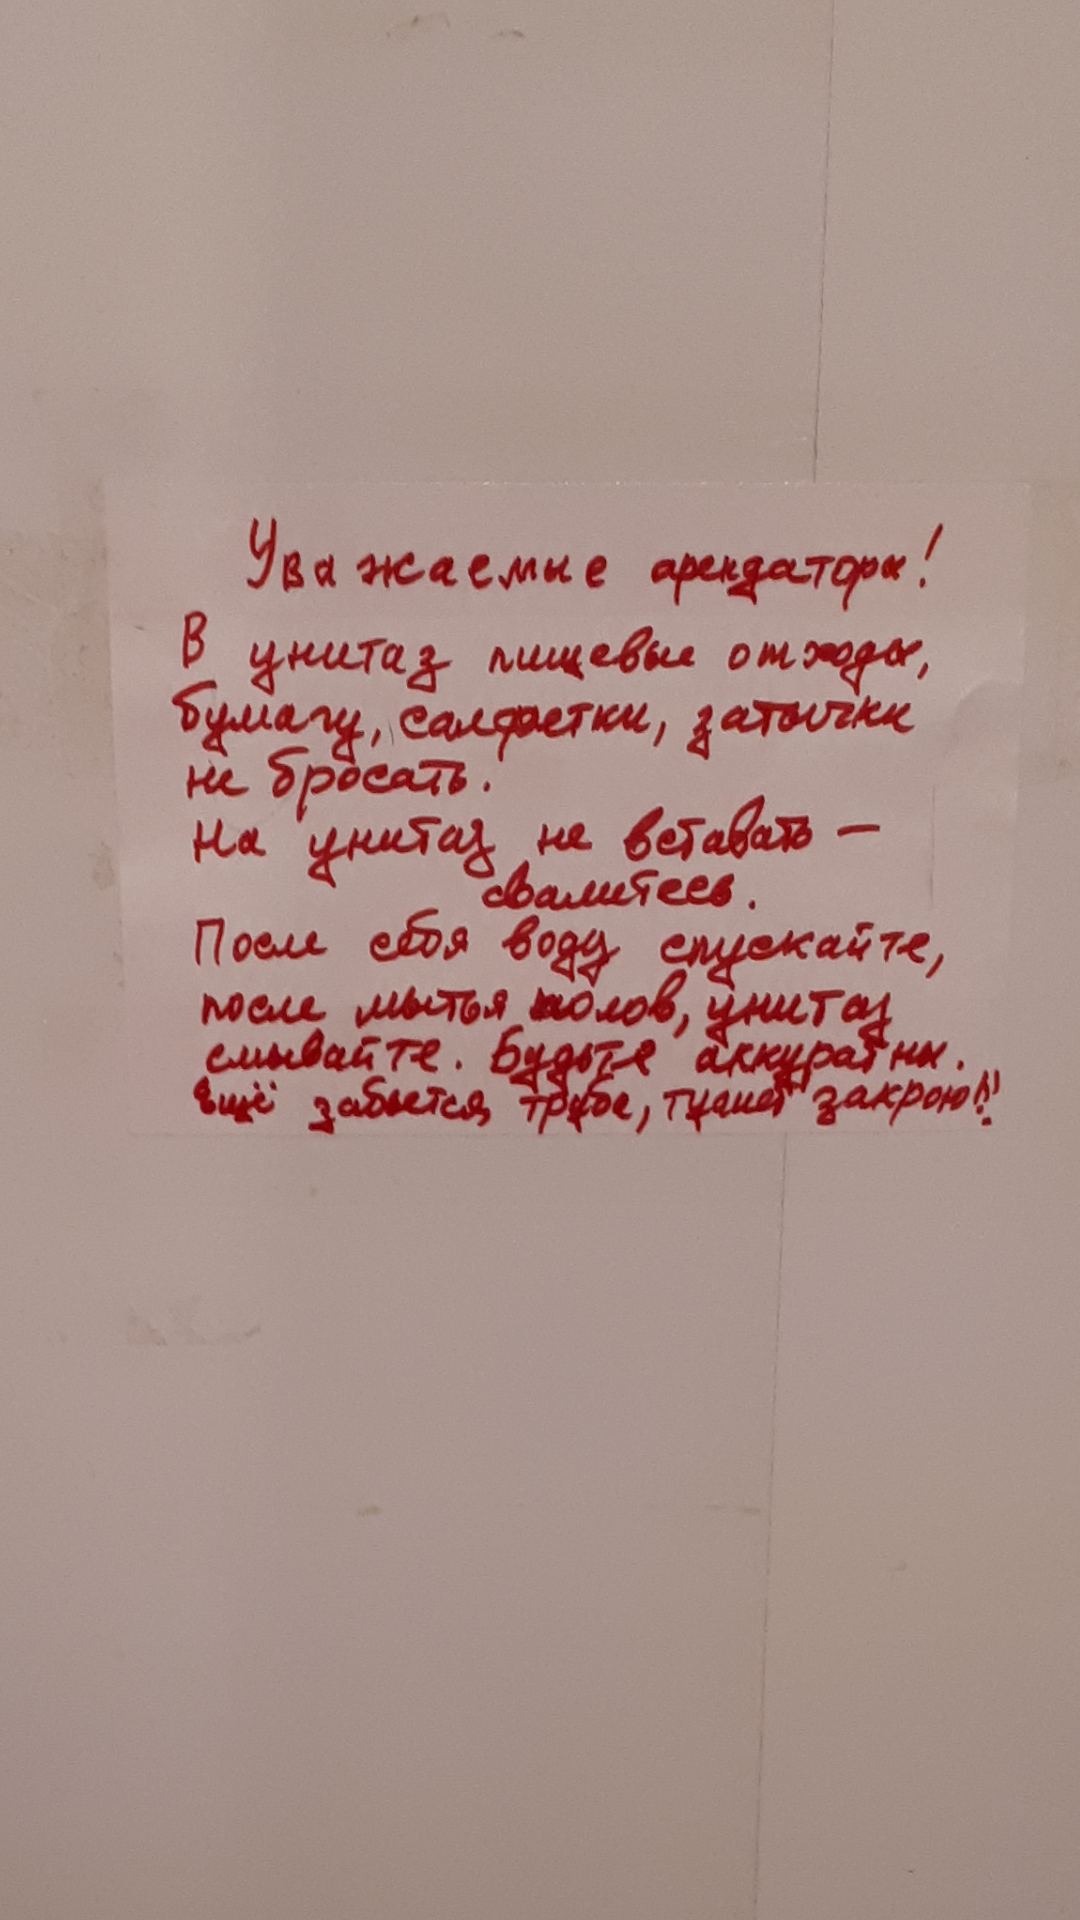 Уважаемые арендаторы!
В унитаз пищевые отходы,
бумагу, салфетки, затычки
не бросать.
На унитаз не вставать —
свалитесь.
После себя воду спускайте,
после мытья полов, унитаз
смывайте. Будьте аккуратны.
Ещё забьется труба, туалет закрою!!